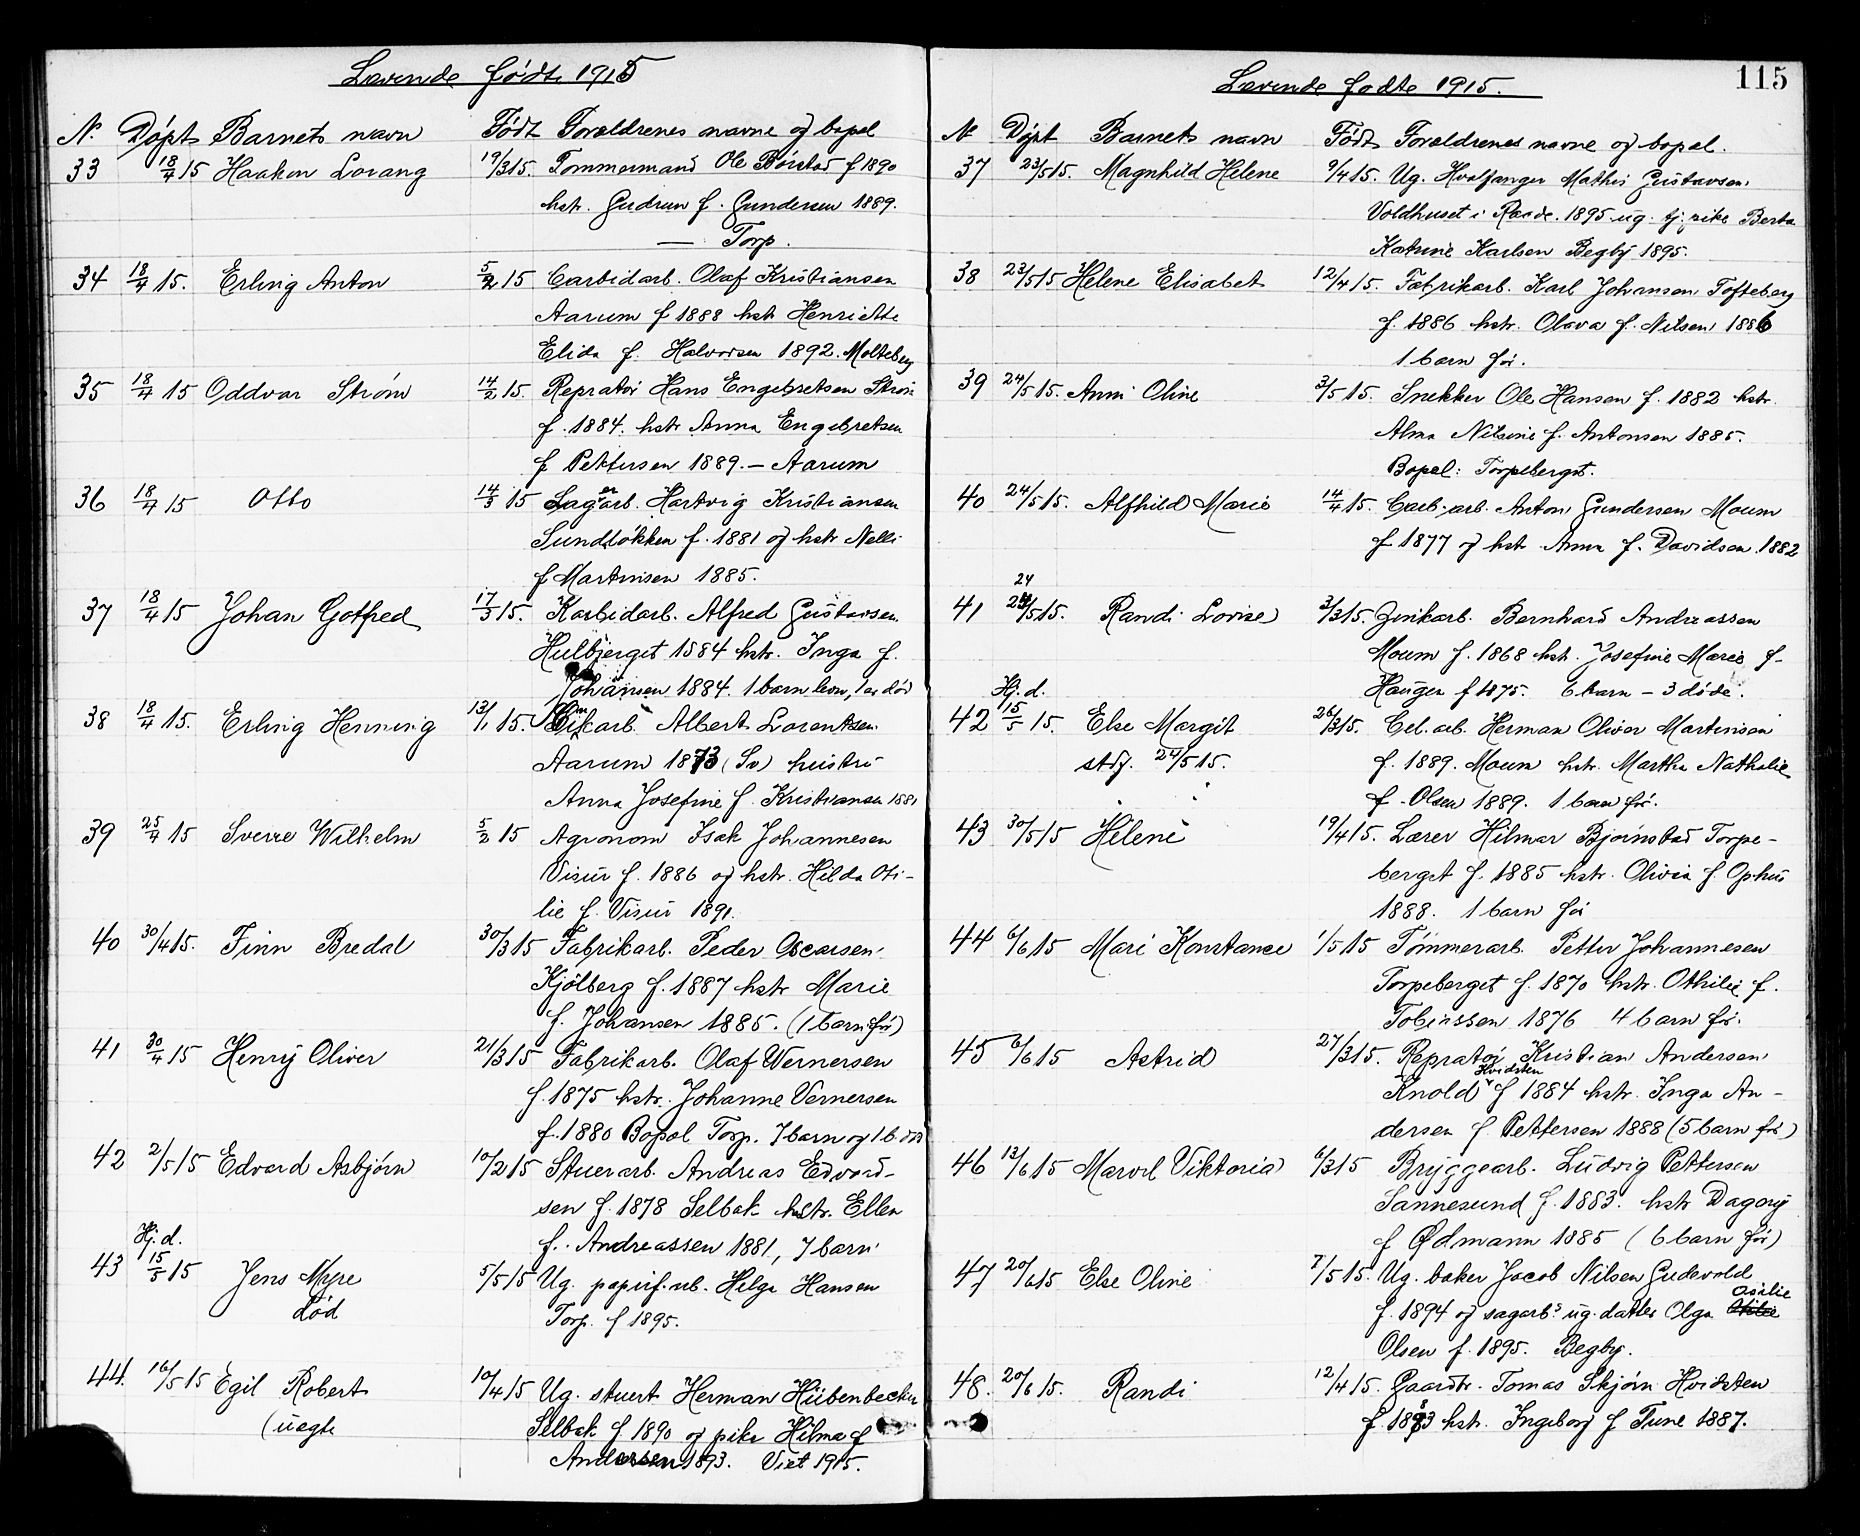 Levende fødte 1915
No. Døpt Barnets navn Født Forældrenes navne og bopel
33 18/4 15 Haakon Lorang 19/3 15. Tommermand Ole Børstad f 1890
hstr. Gudrun f. Gundersen 1889.
— Torp.
34 18/4 15. Erling Anton 5/2 15 Carbidarb. Olaf Kristiansen
Aarum f 1888 hstr Henriette
Elida f. Halvorsen 1892. Molteberg
35 18/4 15 Oddvar Strøm 14/2 15. Repratør Hans Engebretsen Strøm
f. 1884. hstr Anna Engebretsen
f Pettersen 1889. — Aarum
36 18/4 15 Otto 14/3 15 Lagerarb. Hartvig Kristiansen
Sundløkken f. 1881 og hstr Nelli
f Martinsen 1885.
37 18/4 15 Johan Gotfred 17/3 15. Karbidarb. Alfred Gustavsen
Hulbjerget 1884 hstr. Inga f.
Johansen 1884. 1 barn leve, 1 er død
38 18/4 15. Erling Henning 13/1 15. Albert Lorentsen
Aarum 1873 (Sv) huistru
Anna Josefine f. Kristiansen 1881
39 25/4 15 Sverre Wilhelm 5/2 15 Agronom Isak Johannesen
Visur f. 1886 og hstr. Hilda Oti-
lie f. Visur 1891.
40 30/4 15. Finn Bredal 30/3 15 Fabrikarb. Peder Oscarsen
Kjølberg f. 1887 hstr Marie
f. Johansen 1885. (1 barn før)
41 30/4 15 Henry Oliver 21/3 15 Fabrikarb. Olaf Wernersen
f. 1875 hstr. Johanne Vernersen
f. 1880 Bopæl Torp. 7 barn og 1 b. død
42 2/5 15 Edvard Asbjørn 10/2 15 Stuerarb. Andreas Edvard-
sen f. 1878 Selbak hstr. Ellen
f. Andreassen 1881, 7 barn
Hj. d.
43 15/5 15 Jens Myre 5/5 15 Ug. papirf. arb. Helga Hansen
død Torp. f 1895.
44. 16/5 15 Egil Robert 10/4 15 Ug. stuert Herman Hübenbecker
(uegte Selbak f 1890 og pike Hilma f
Andersen 1893. Viet 1915.
115
Levende fødte 1915.
No Døpt Barnets navn Født Forældrenes navne og bopel.
37 23/5 15. Magnhild Helene 9/4 15. Ug. Hvalfanger Mathis Gustavsen
Voldhuset i Raade. 1895 ug. tj. pike Berta
Katrine Karlsen Begby 1895.
38 23/5 15 Helene Elisabet 12/4 15. Fabrikarb. Karl Johansen Tofteberg
f. 1886 hstr. Olava f. Nilsen 1886
1 barn før.
39 24/5 15. Anni Oline 3/5 15. Snekker Ole Hansen f. 1882 hstr.
Alma Nilsine f. Antonsen 1885.
Bopel: Torpeberget.
40 24/5 15. Alfhild Marie 14/4 15. Carb. arb. Anton Gundersen Moum
f 1877 og hstr Anna f. Davidsen 1882
24
41 /5 15. Randi Lovise 3/3 15. Zinkarb. Bernhard Andreassen
Moum f. 1868 hst. Josefine Marie f.
Haugen f 1875. 6 barn — 3 døde.
Hj. d.
42 15/5 15. Else Margit 26/3 15. Cel. arb. Herman Oliver Martinsen
stdf. 24/5 15. f. 1889. Moum hstr. Martha Nathalie
f. Olsen 1889. 1 barn før.
43 30/5 15 Helene 19/4 15. Lærer Hilmar Bjørnstad Torpe-
berget f. 1885 hstr. Olivia f. Ophus
1888. 1 barn før
44 6/6 15 Mari Konstanse 1/5 15 Tømmerarb. Petter Johannesen
Torpeberget f. 1870 hstr. Othilie f.
Tobiassen 1876 4 barn før.
45 6/6 15 Astrid 27/3 15. Repratør Kristian Andersen
Hvidsten
Knold f 1884 hstr. Inga An-
dersen f. Pettersen 1888 (5 barn før)
46 13/6 15 Marvel Viktoria 6/3 15 Bryggearb. Ludvig Pettersen
Sannesund f. 1883. hstr Dagny
f Ødmann 1885 (6 barn før)
47 20/6 15 Else Oline 7/5 15. Ug. baker Jacob Nilsen Gudevold
Oasilie
f. 1894 og sagarb.s ug. datter Olga
Olsen f. 1895. Begby.
48. 20/6 15. Randi 12/4 15. Gaardbr. Tomas Skjørn Hvidsten
f. 1883 hstr. Ingeborg f Tune 1887.